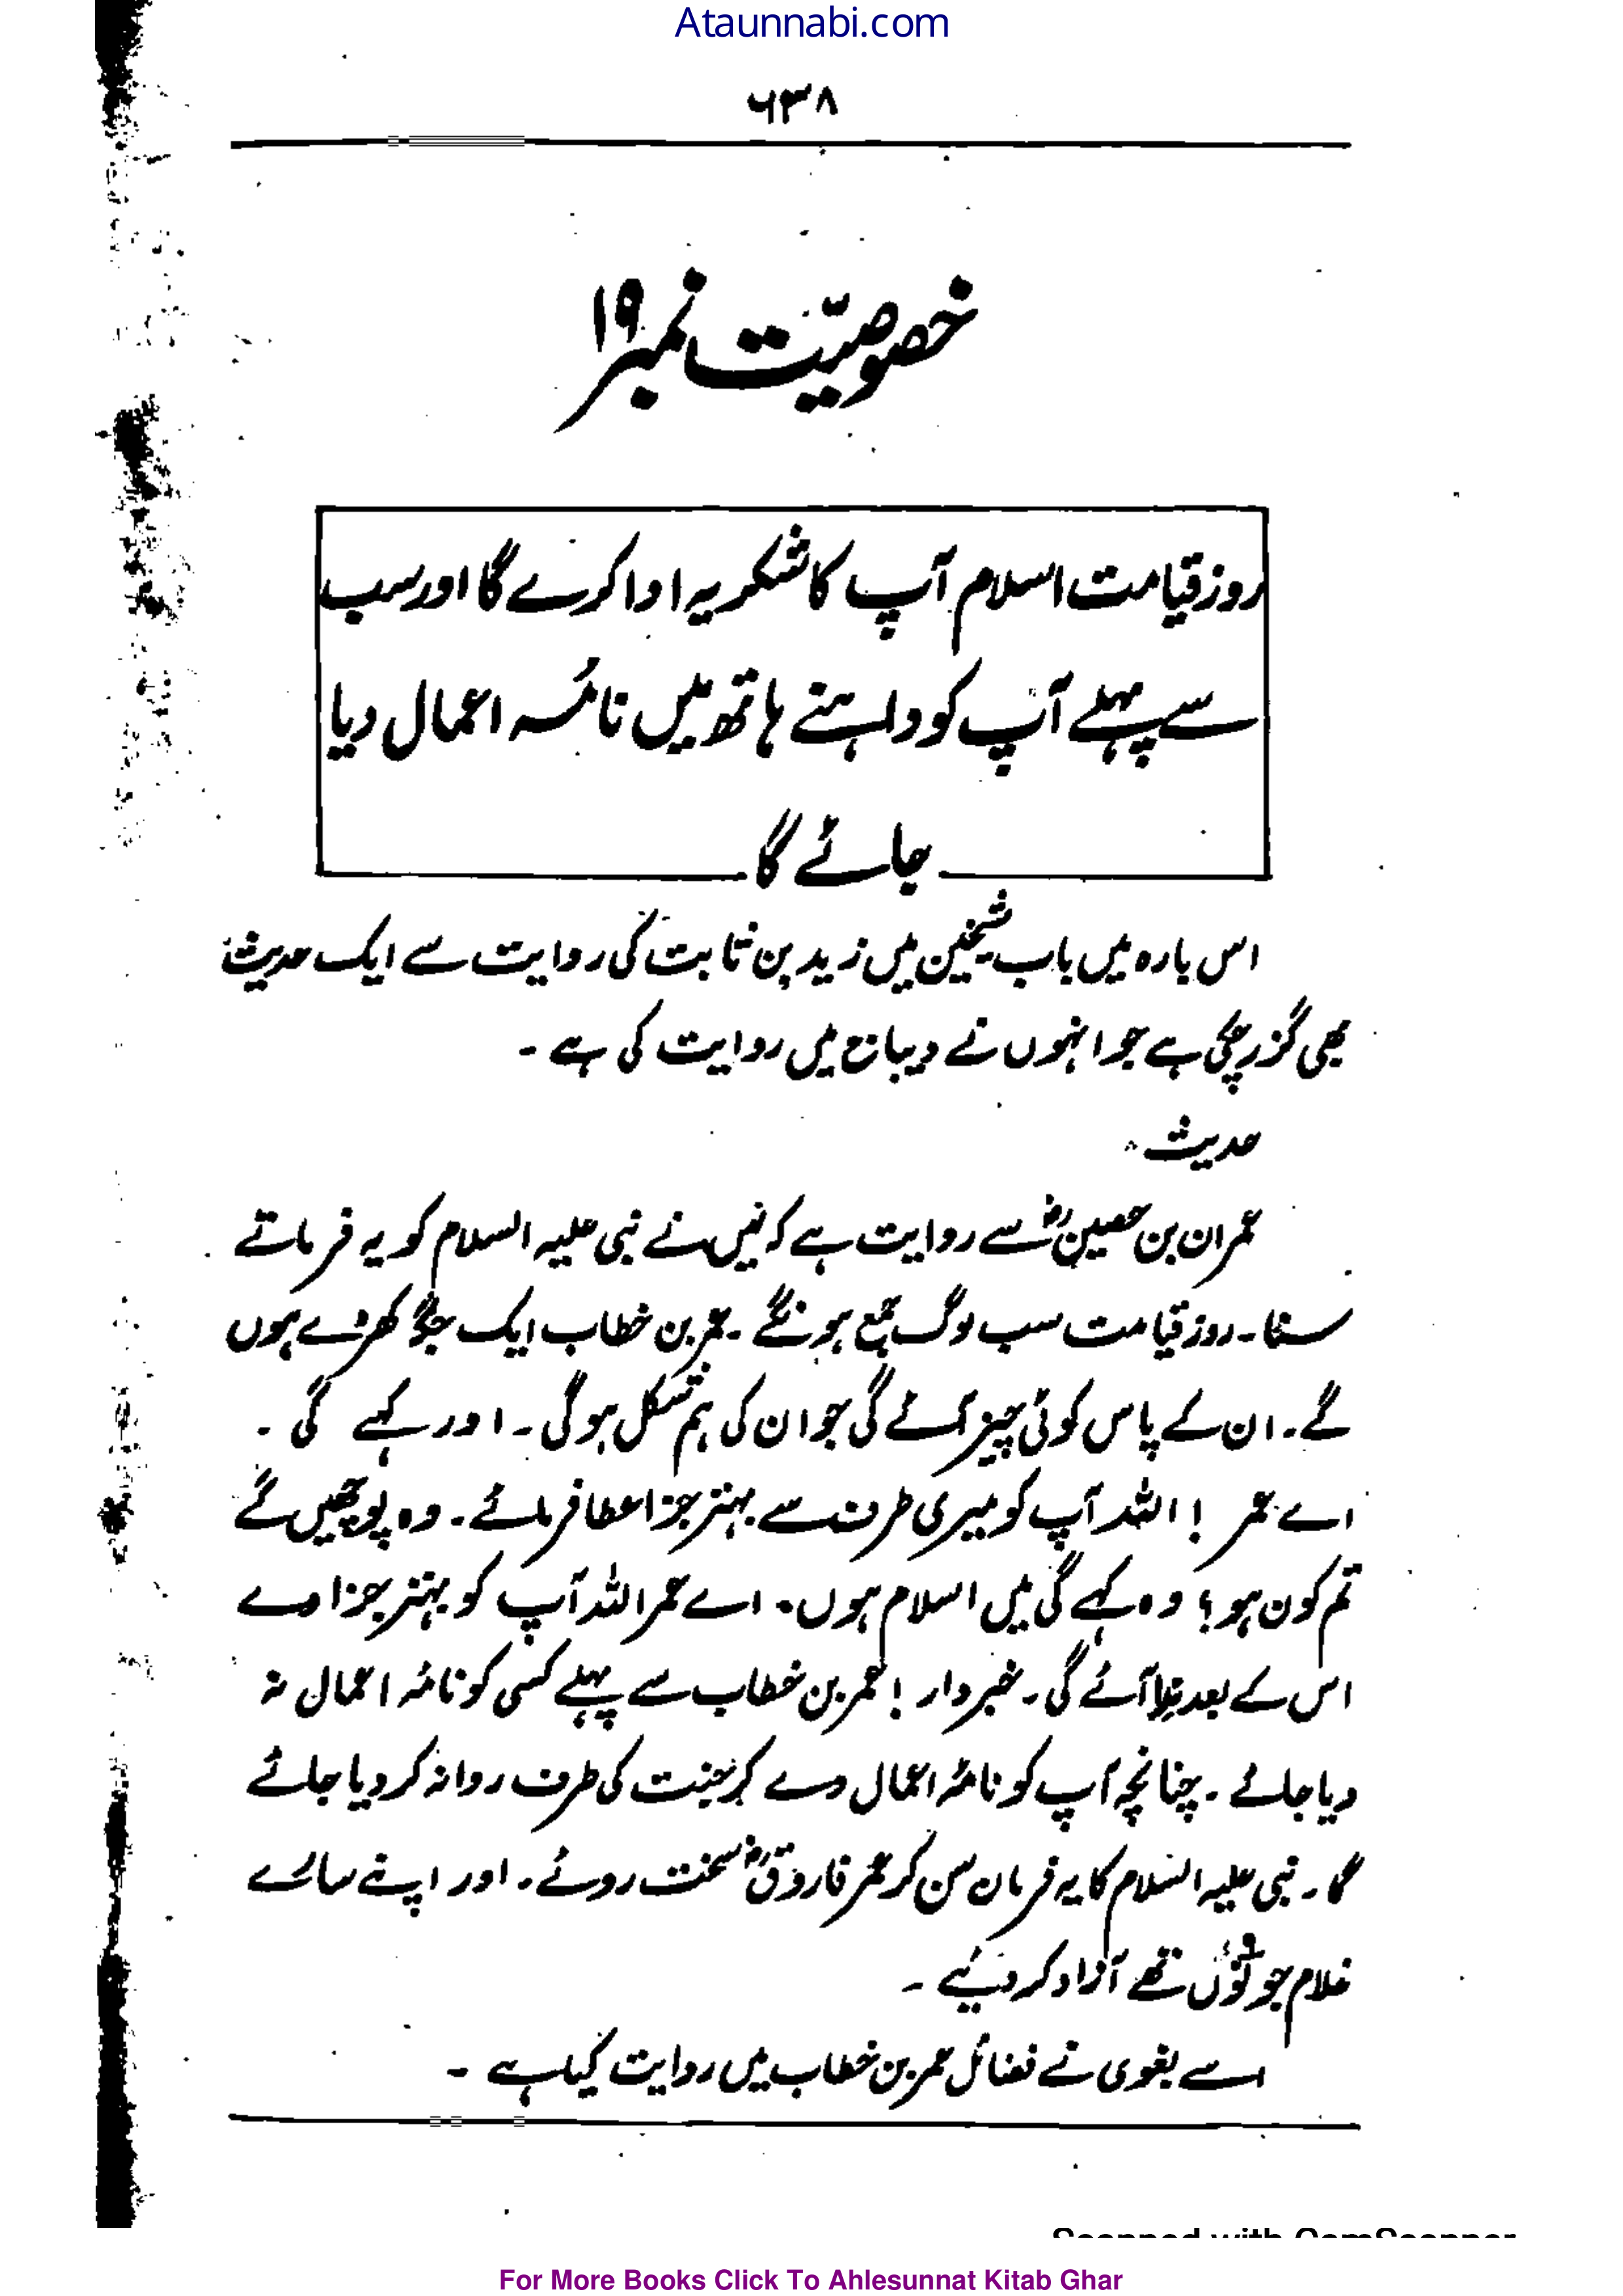 Ataunnabi.com
۶۳۸
خصوصیّت نمبر ۱۹
روز قیامت اسلام آپ کا شکریہ ادا کرے گا اور سب
سے پہلے آپ کو داہنے ہاتھ میں نامہٴ اعمال دیا
جائے گا
اس بارہ میں باب شیخین میں زید بن ثابت کی روایت سے ایک حدیث
بھی گزر چکی ہے جو انہوں نے دیباج میں روایت کی ہے ۔
حدیث
عمران بن حصینؓ سے روایت ہے کہ میں نے نبی علیہ السلام کو یہ فرماتے
سنا ۔ روز قیامت سب لوگ جمع ہونگے ۔ عمر بن خطاب ایک جگہ کھڑے ہوں
گے ۔ ان کے پاس کوئی چیز آئے گی جو ان کی ہم شکل ہوگی ۔ اور کہے گی ۔
اے عمر ! اللہ آپ کو میری طرف سے بہتر جزا عطا فرمائے ۔ وہ پوچھیں گے
تم کون ہو ؟ وہ کہے گی میں اسلام ہوں ۔ اے عمر اللہ آپ کو بہتر جزا دے
اس کے بعد ندا آئے گی ۔ خبردار ! عمر بن خطاب سے پہلے کسی کو نامۂ اعمال نہ
دیا جائے ۔ چنانچہ آپ کو نامۂ اعمال دے کر جنت کی طرف روانہ کر دیا جائے
گا ۔ نبی علیہ السلام کا یہ فرمان سن کر عمر فاروقؓ سخت روئے ۔ اور اپنے سارے
غلام جو تھے آزاد کر دیئے ۔
اسے بغوی نے فضائل عمر بن خطاب میں روایت کیا ہے ۔
Scanned with CamScanner
For More Books Click To Ahlesunnat Kitab Ghar